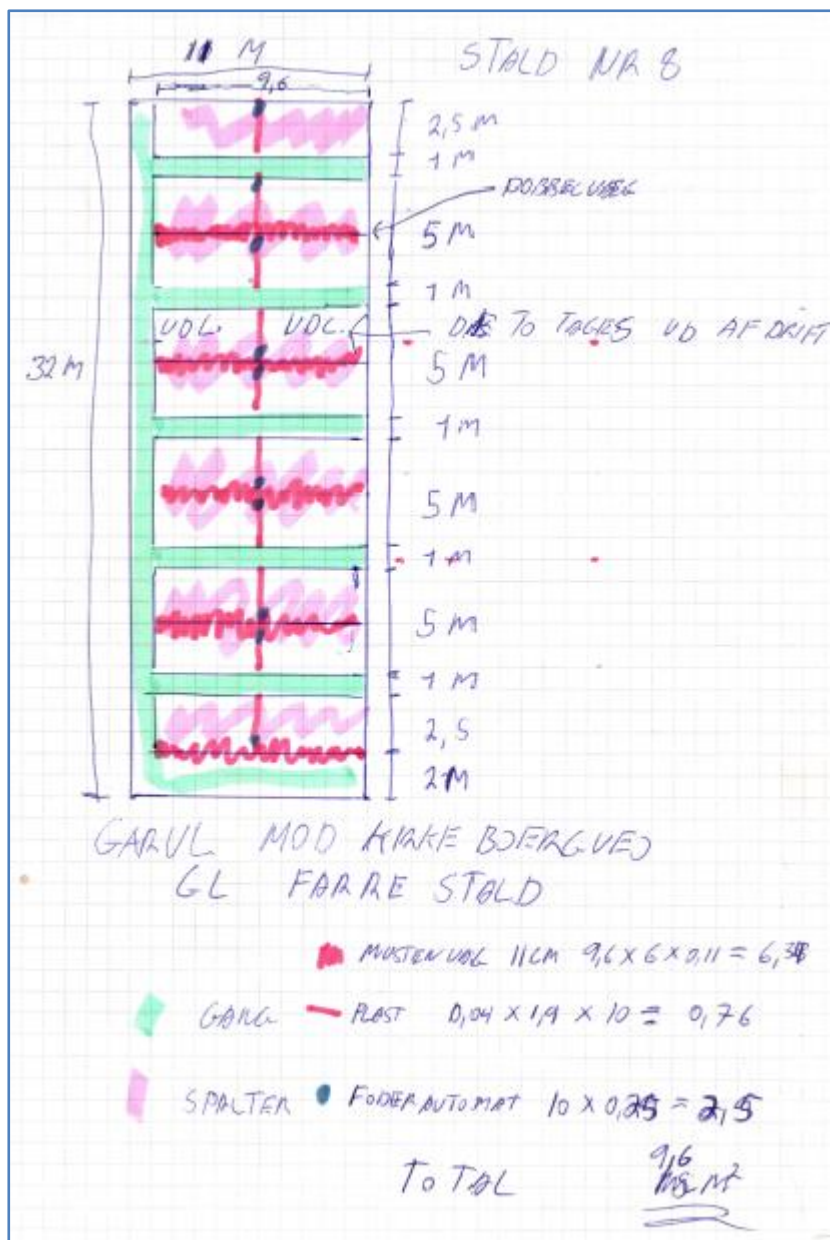 11 M
STALD NR 8
9,6
2,5 M
1 M
DOBBEL VÆG
5 M
1 M
UDL. UDL. DE TO TAGES UD AF DRIFT
32 M
5 M
1 M
5 M
1 M
5 M
1 M
2,5
2 M
GAVL MOD KIRKE BJERGVEJ
GL FARRE STALD
MURSTEN VÆG 11 CM 9,6 x 6 x 0,11 = 6,3
GANG PLAST 0,04 x 1,9 x 10 = 0,76
SPALTER FODERAUTOMAT 10 x 0,25 = 2,5
TOTAL 9,6 M²